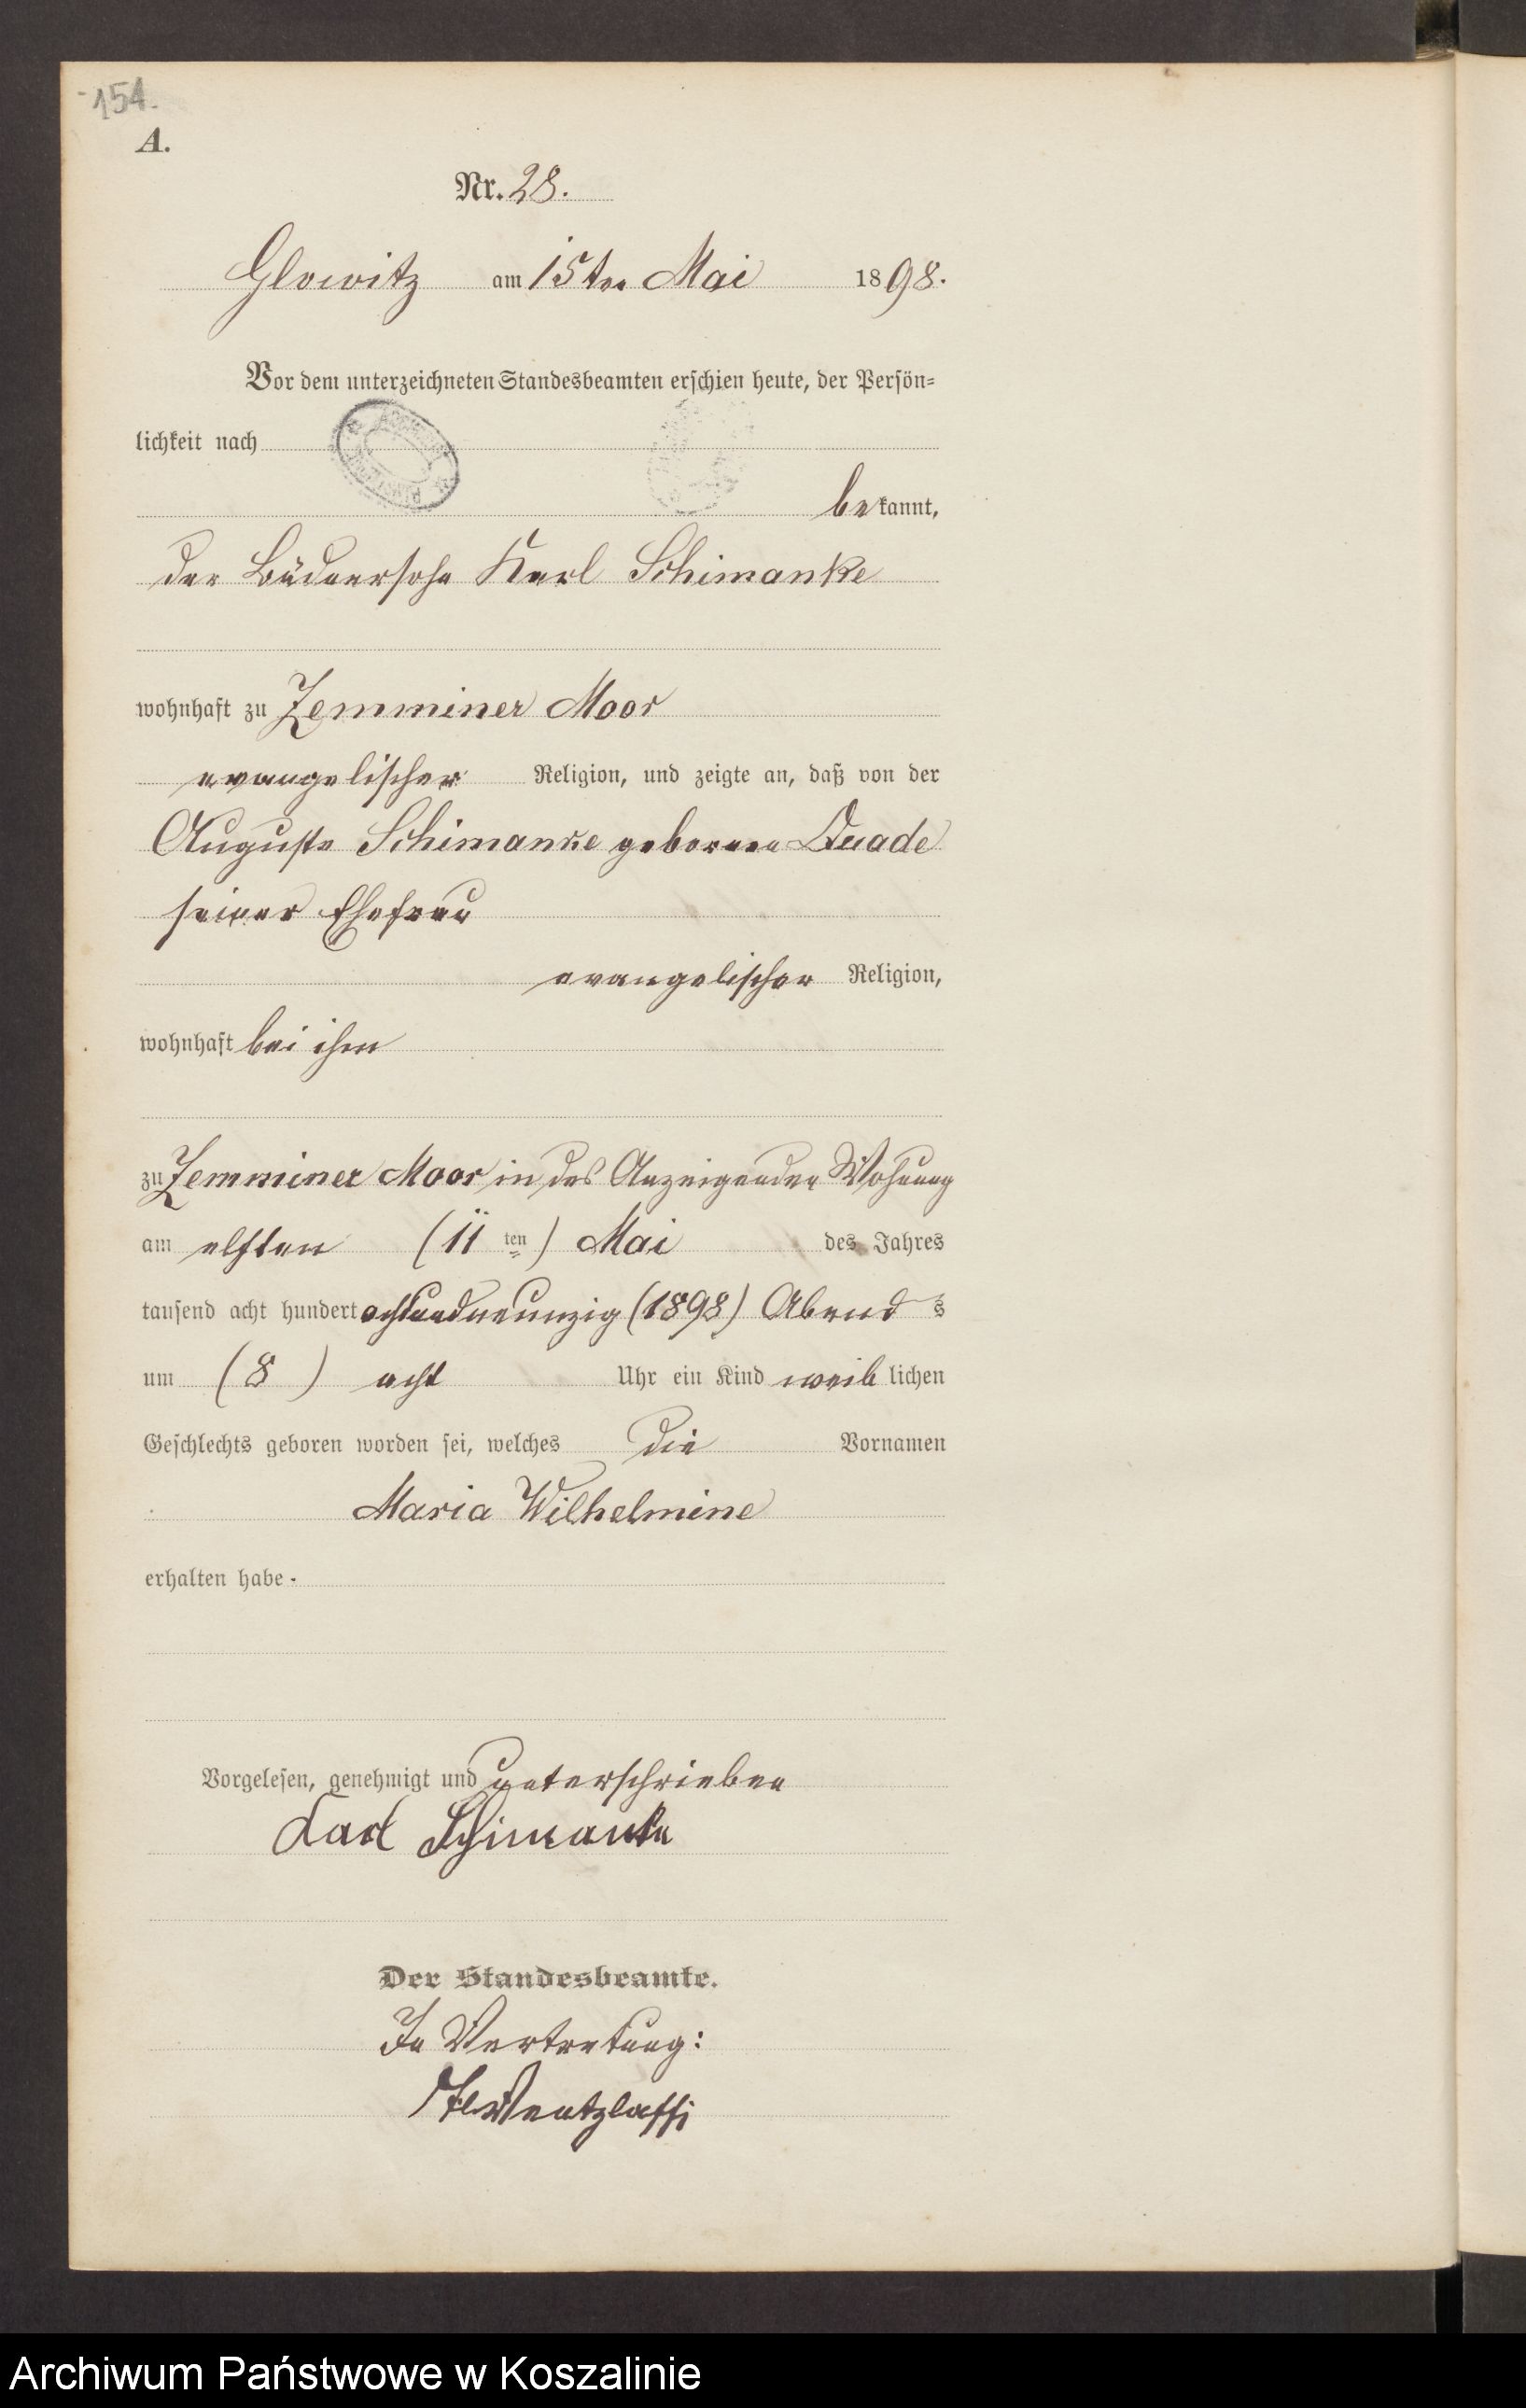 154.
A.
Nr. 28.
Glowitz am 15ten Mai 1898.
Vor dem unterzeichneten Standesbeamten erschien heute, der Persön=
lichkeit nach
bekannt,
der Büdnersohn Karl Schimanke
wohnhaft zu Zemminer Moor
evangelischer Religion, und zeigte an, daß von der
Auguste Schimanke geborenen Quade
seiner Ehefrau
evangelischer Religion,
wohnhaft bei ihm
zu Zemminer Moor in des Anzeigenden Wohnung
am elften (11ten) Mai des Jahres
tausend acht hundert achtundneunzig (1898) Abends
um (8) acht Uhr ein Kind weiblichen
Geschlechts geboren worden sei, welches die Vornamen
Maria Wilhelmine
erhalten habe.
Vorgelesen, genehmigt und unterschrieben
Karl Schimanke
Der Standesbeamte.
In Vertretung:
Archiwum Państwowe w Koszalinie